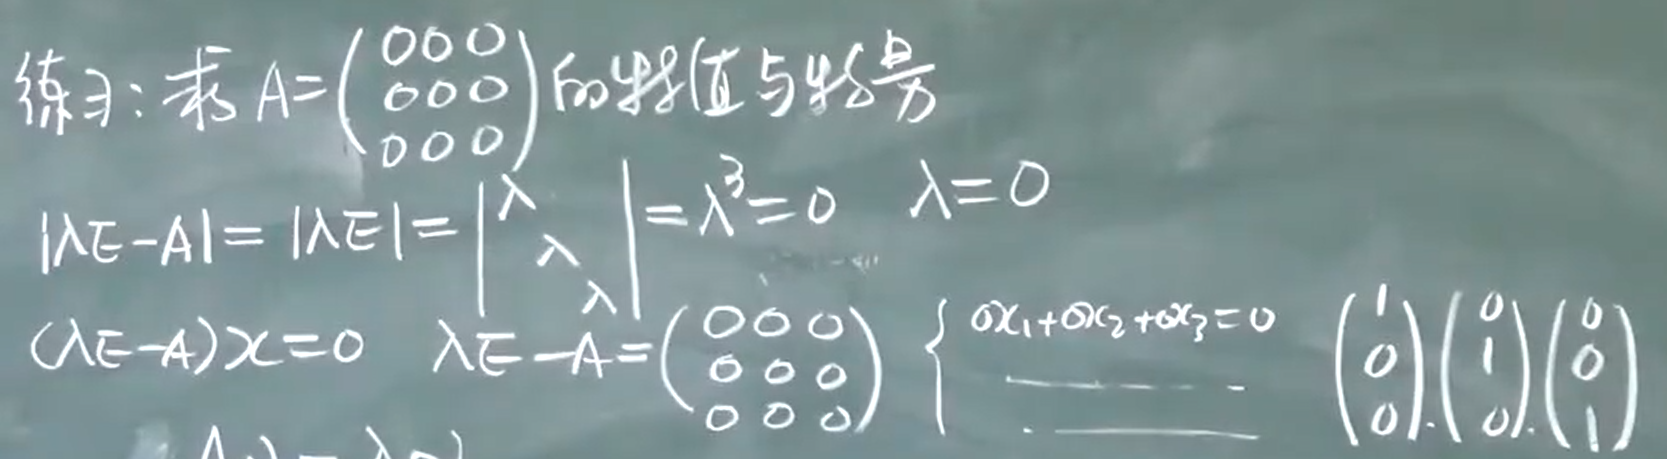 练习: 求 A=(0 0 0; 0 0 0; 0 0 0) 的特值与特量
|λE-A|=|λE|=|λ λ λ|=λ³=0 λ=0
(λE-A)x=0 λE-A=(0 0 0; 0 0 0; 0 0 0) { 0x₁+0x₂+0x₃=0 (1 0 0).(0 1 0).(0 0 1)